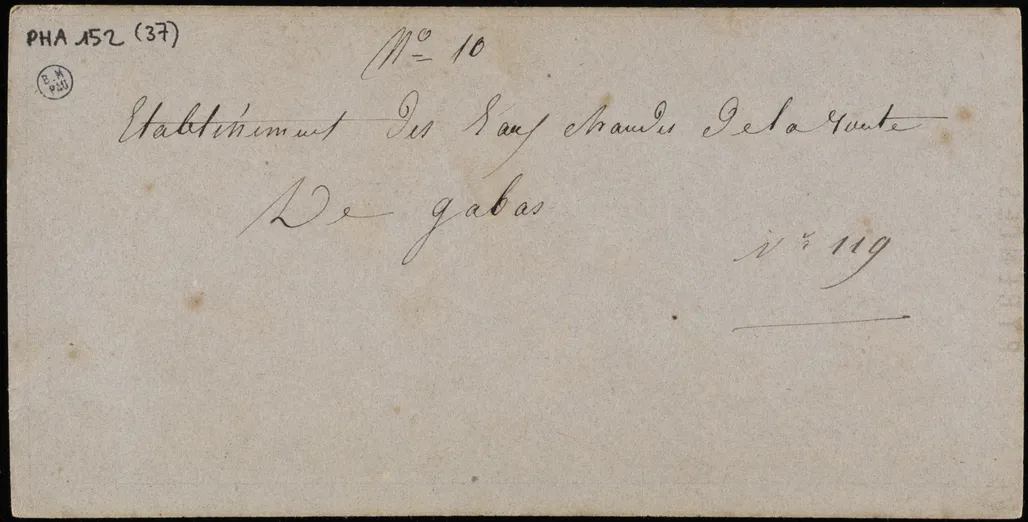 PHA 152 (37)
B.M
PAU
No 10
Etablissement des Eaux chaudes de la route
De gabas
No 119